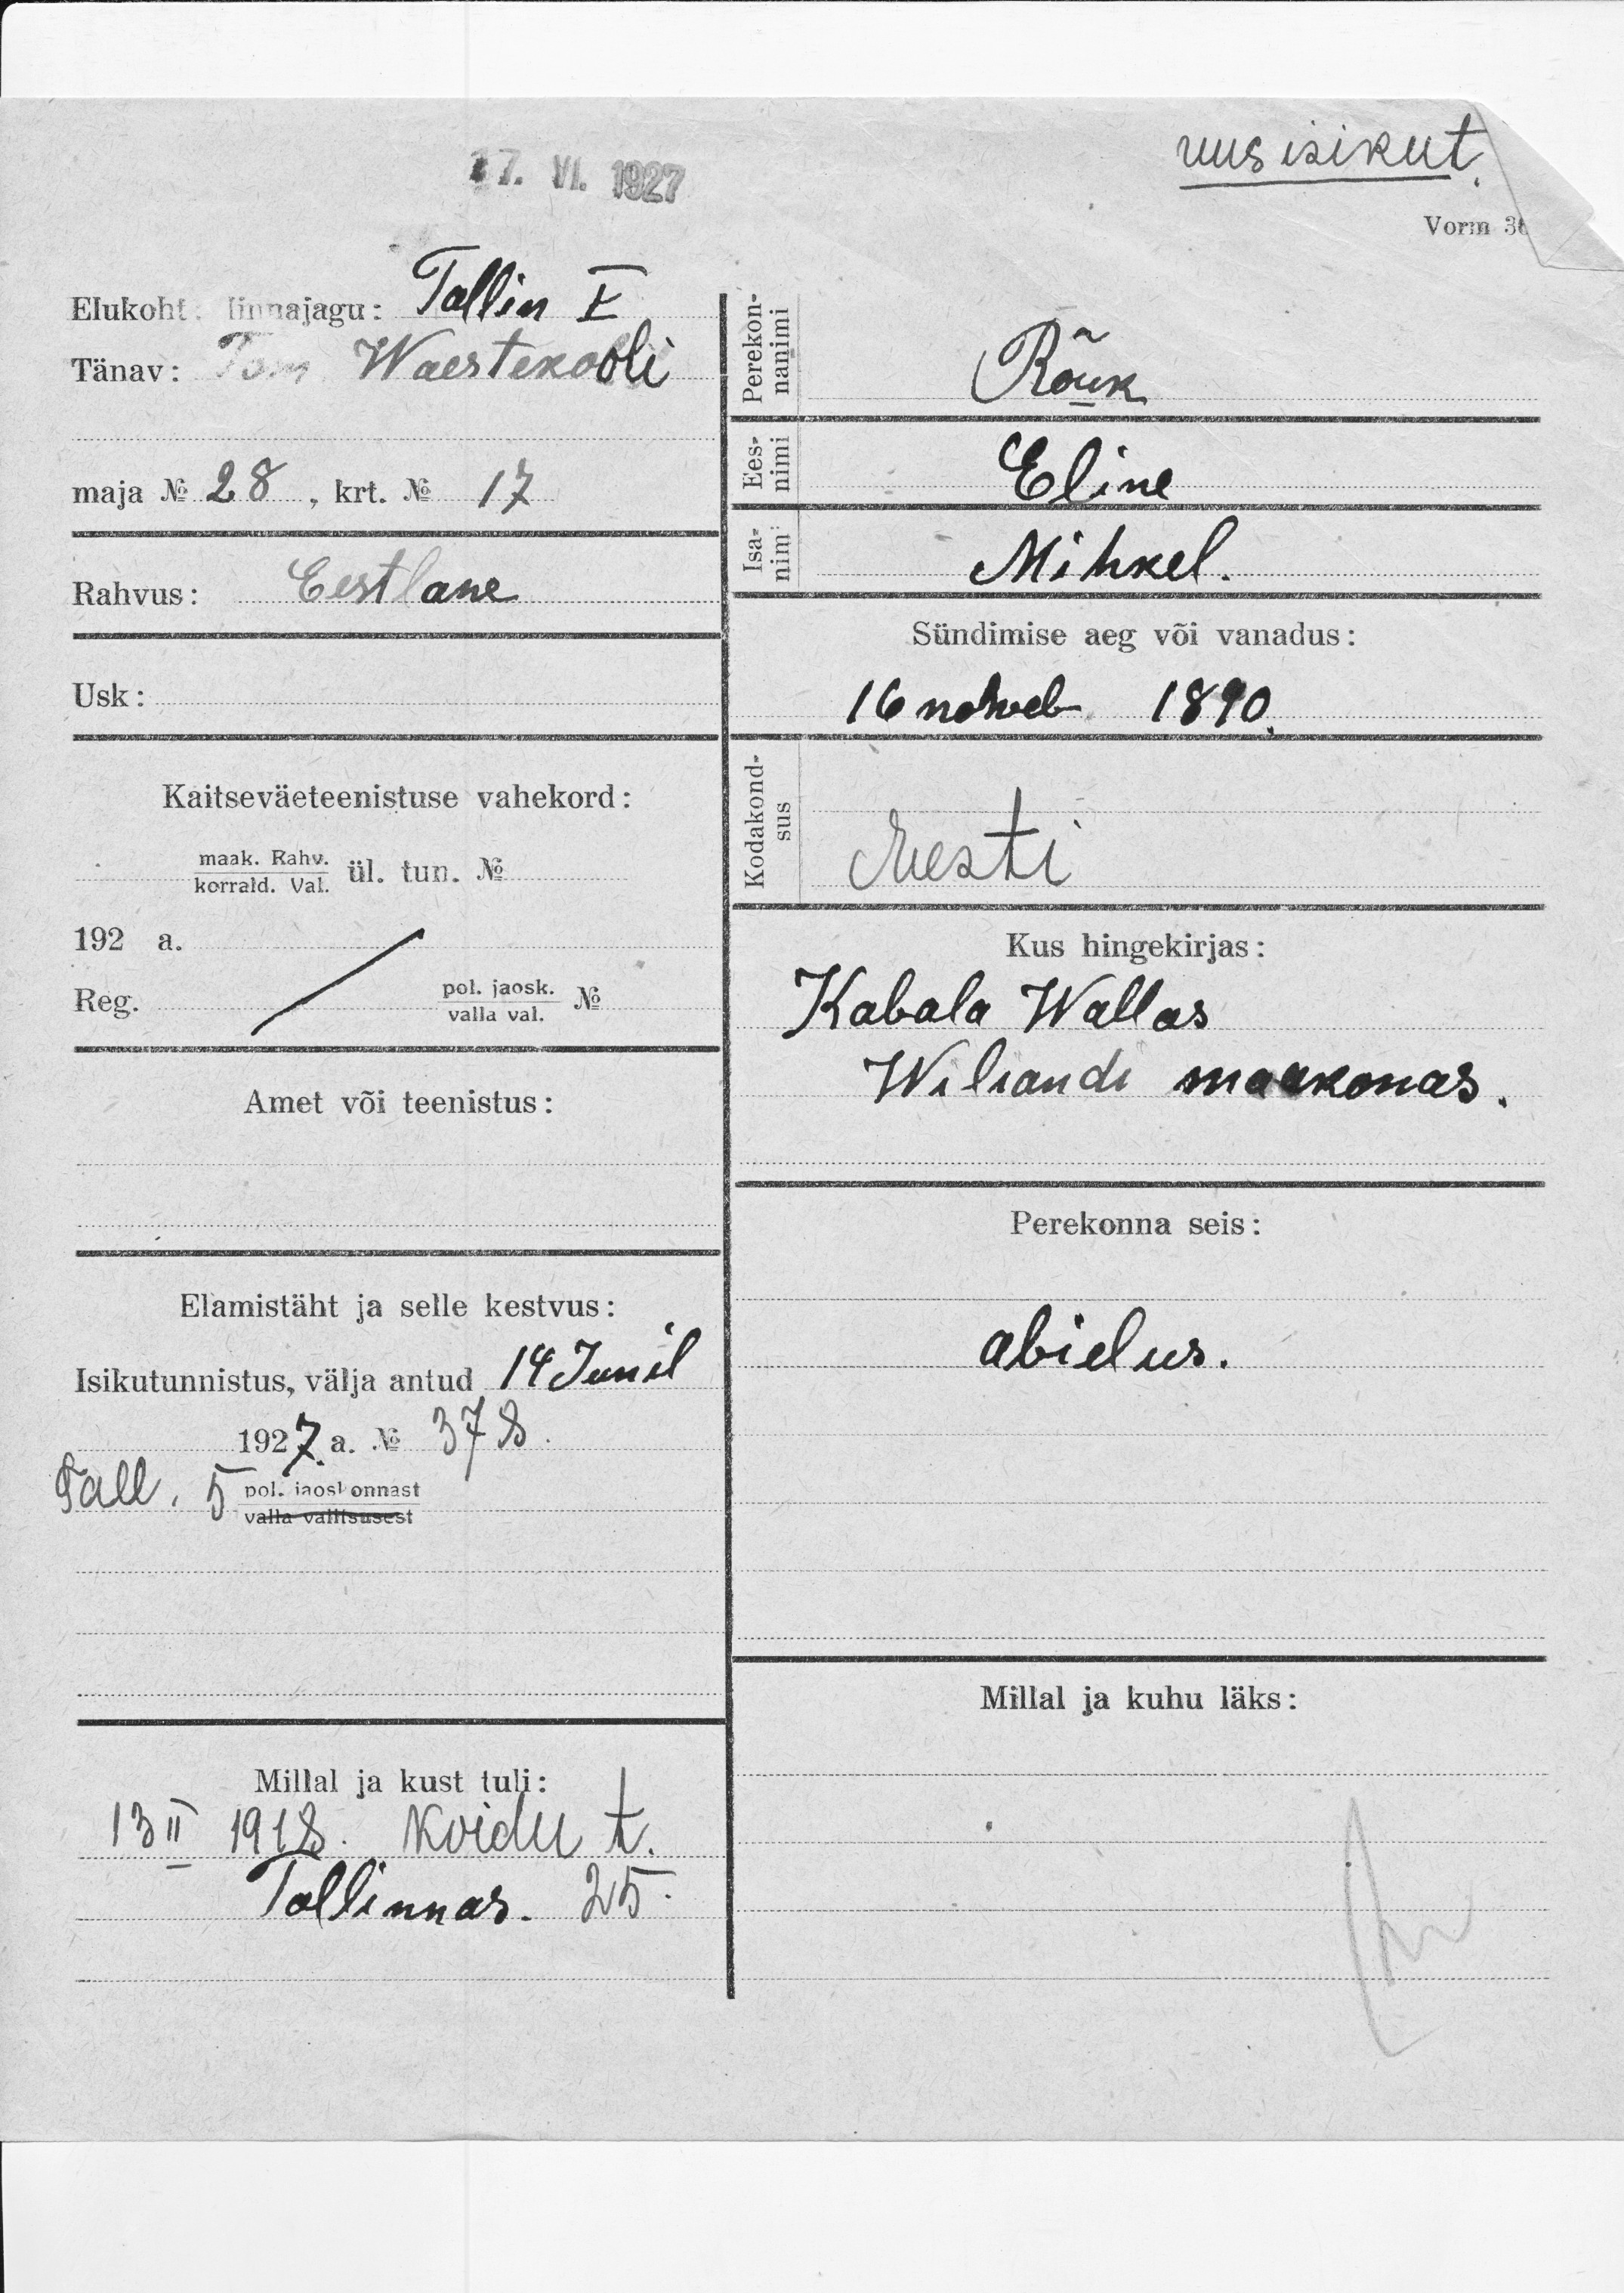 17. VI. 1927
uus isikut.
Vorm
Elukoht: linnajagu: Tallin I
Tänav: Tom Waestekooli
maja № 28, krt. № 17
Rahvus: Eestlane
Usk:
Kaitseväeteenistuse vahekord:
maak. Rahv.
korrald. Val. ül. tun. №
192 a.
Reg. pol. jaosk.
valla val. №
Amet või teenistus:
Elamistäht ja selle kestvus:
Isikutunnistus, välja antud 14 Junil
1927. a. № 378.
Tall. 5 pol. jaoskonnast
valla valitsusest
Millal ja kust tuli:
13 II 1918. Koidu t.
Tallinnas. 25.
Perekon-
nanimi Rõuk
Ees-
nimi Eline
Isa-
nimi Mihkel.
Sündimise aeg või vanadus:
16 noweb 1890.
Kodakond-
sus Eesti
Kus hingekirjas:
Kabala Wallas
Wiliandi maakonas.
Perekonna seis:
abielus.
Millal ja kuhu läks: